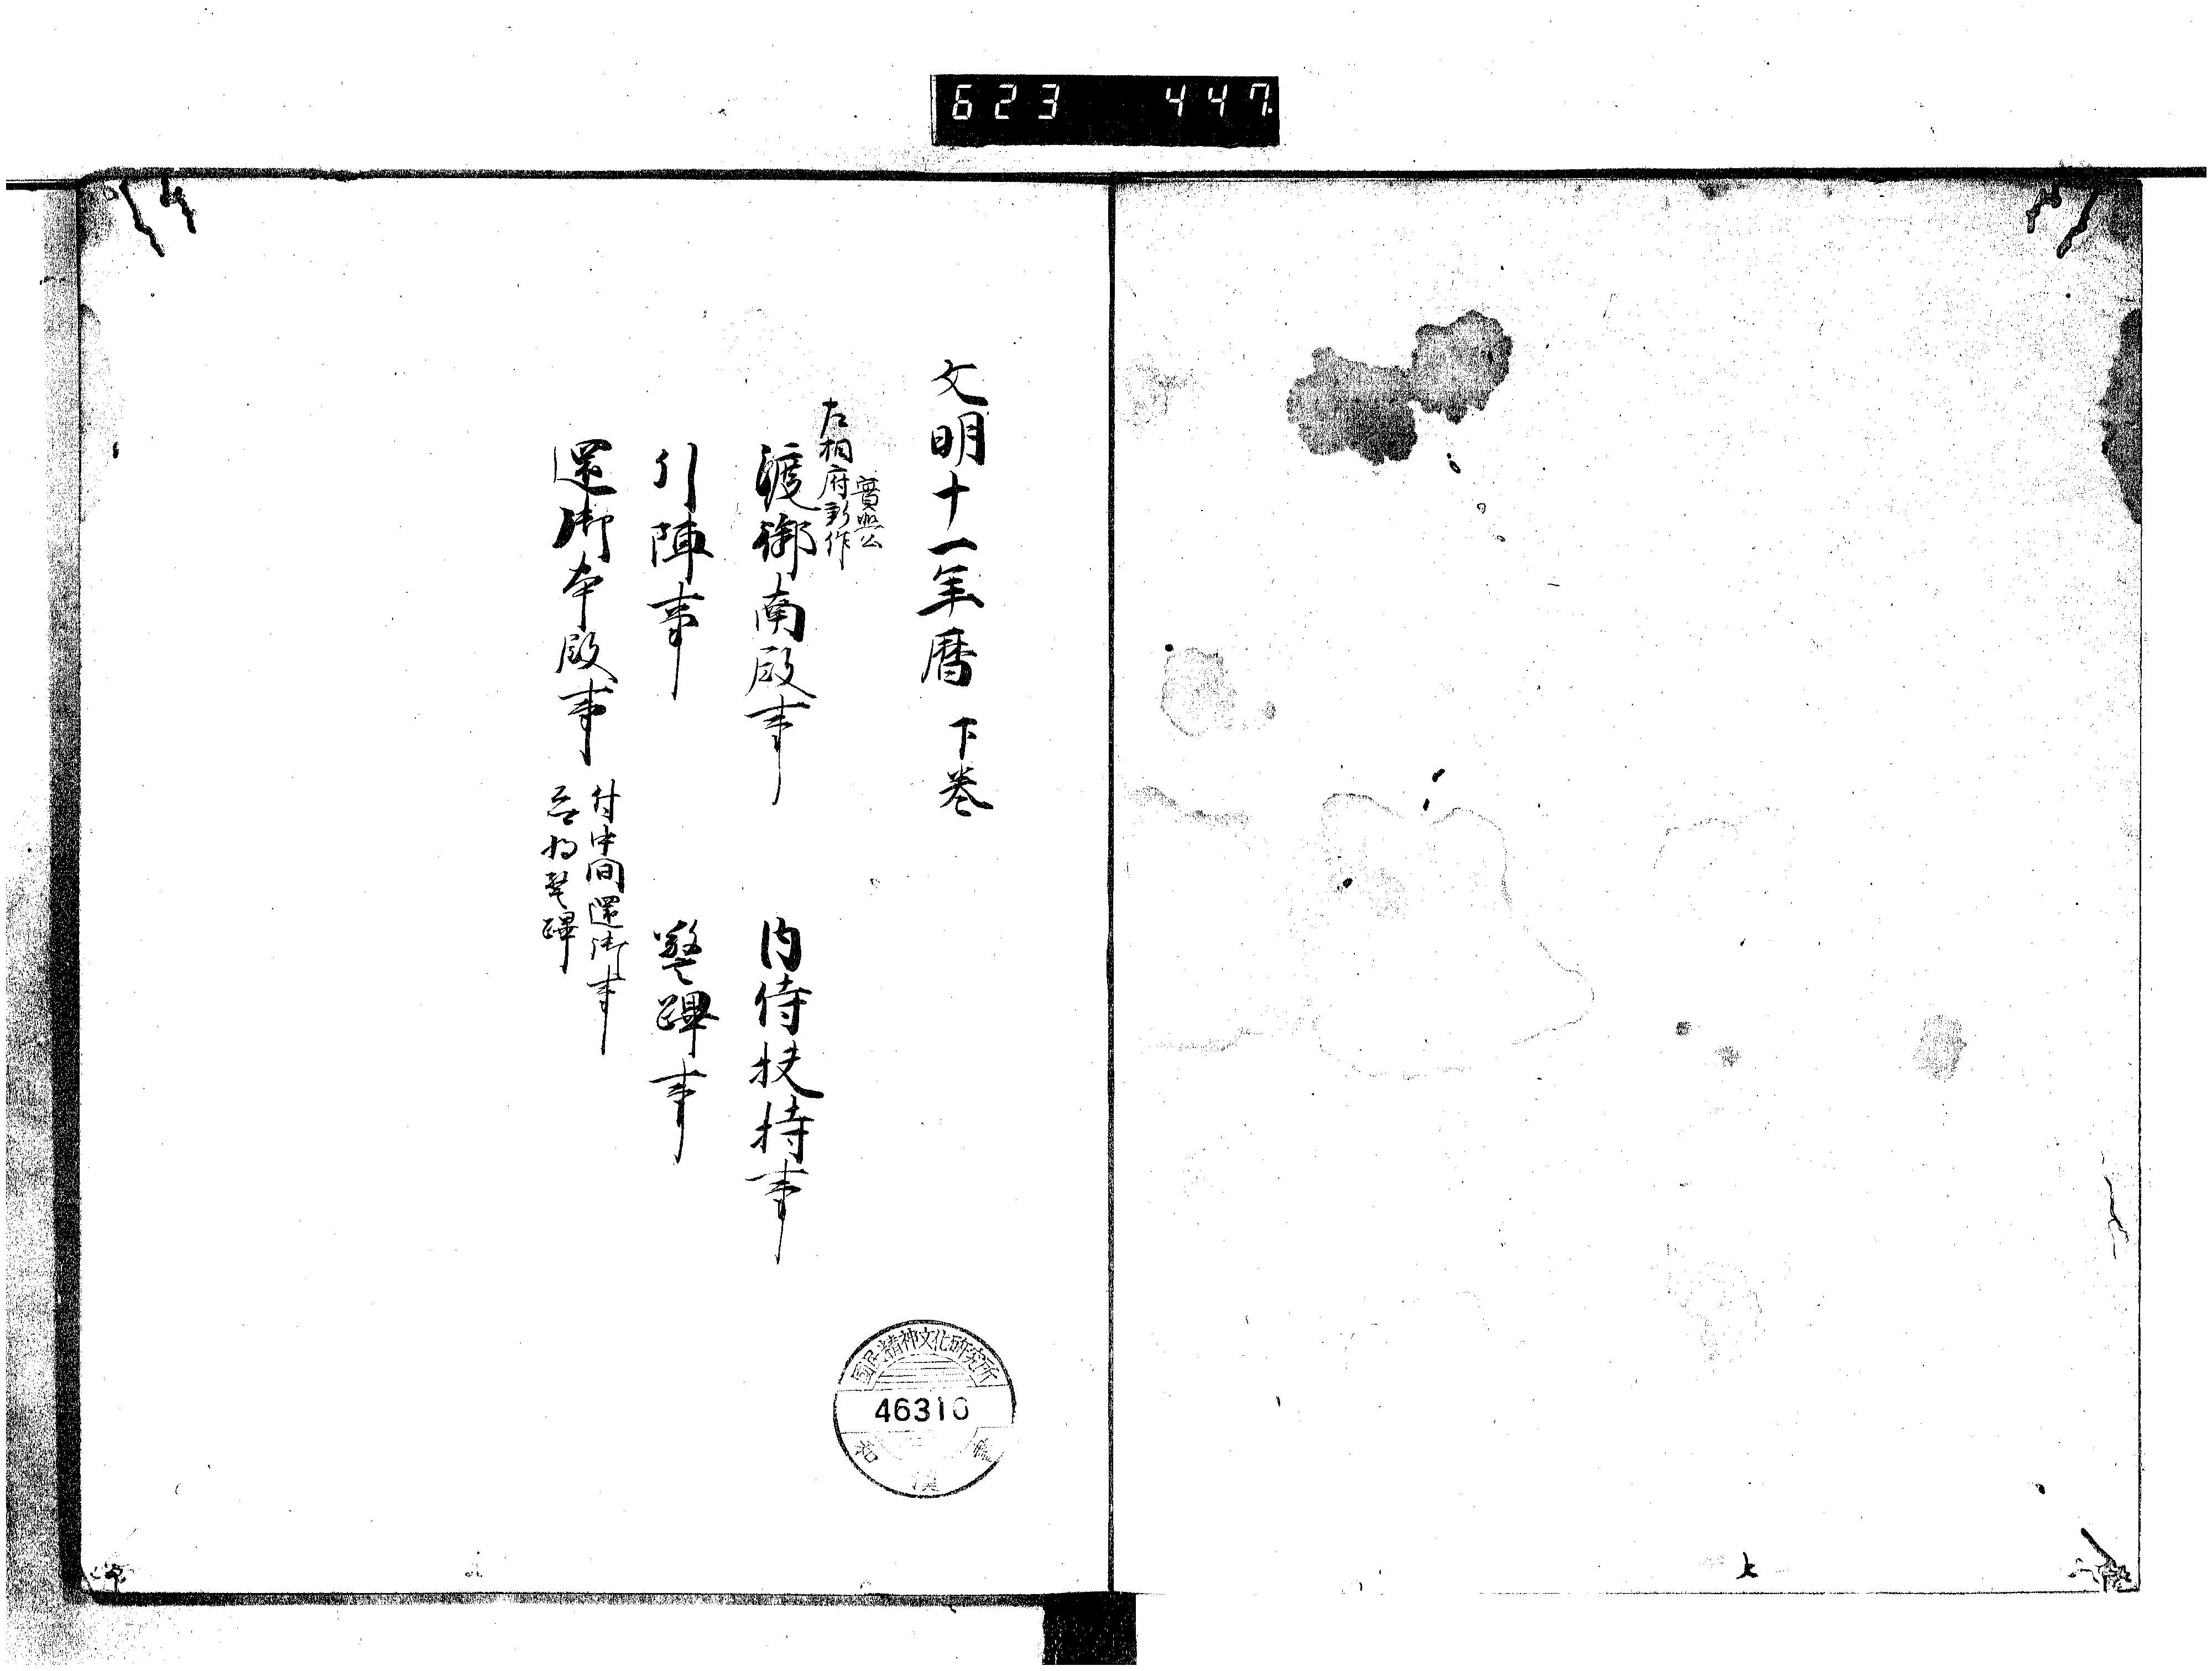 623 447
文明十一年曆 下卷
左相府新作
實煕公
渡御南殿事 内侍扶持事
引陣事 警蹕事
還御本殿事
付中間還御事
警蹕
國民精神文化研究所
46310